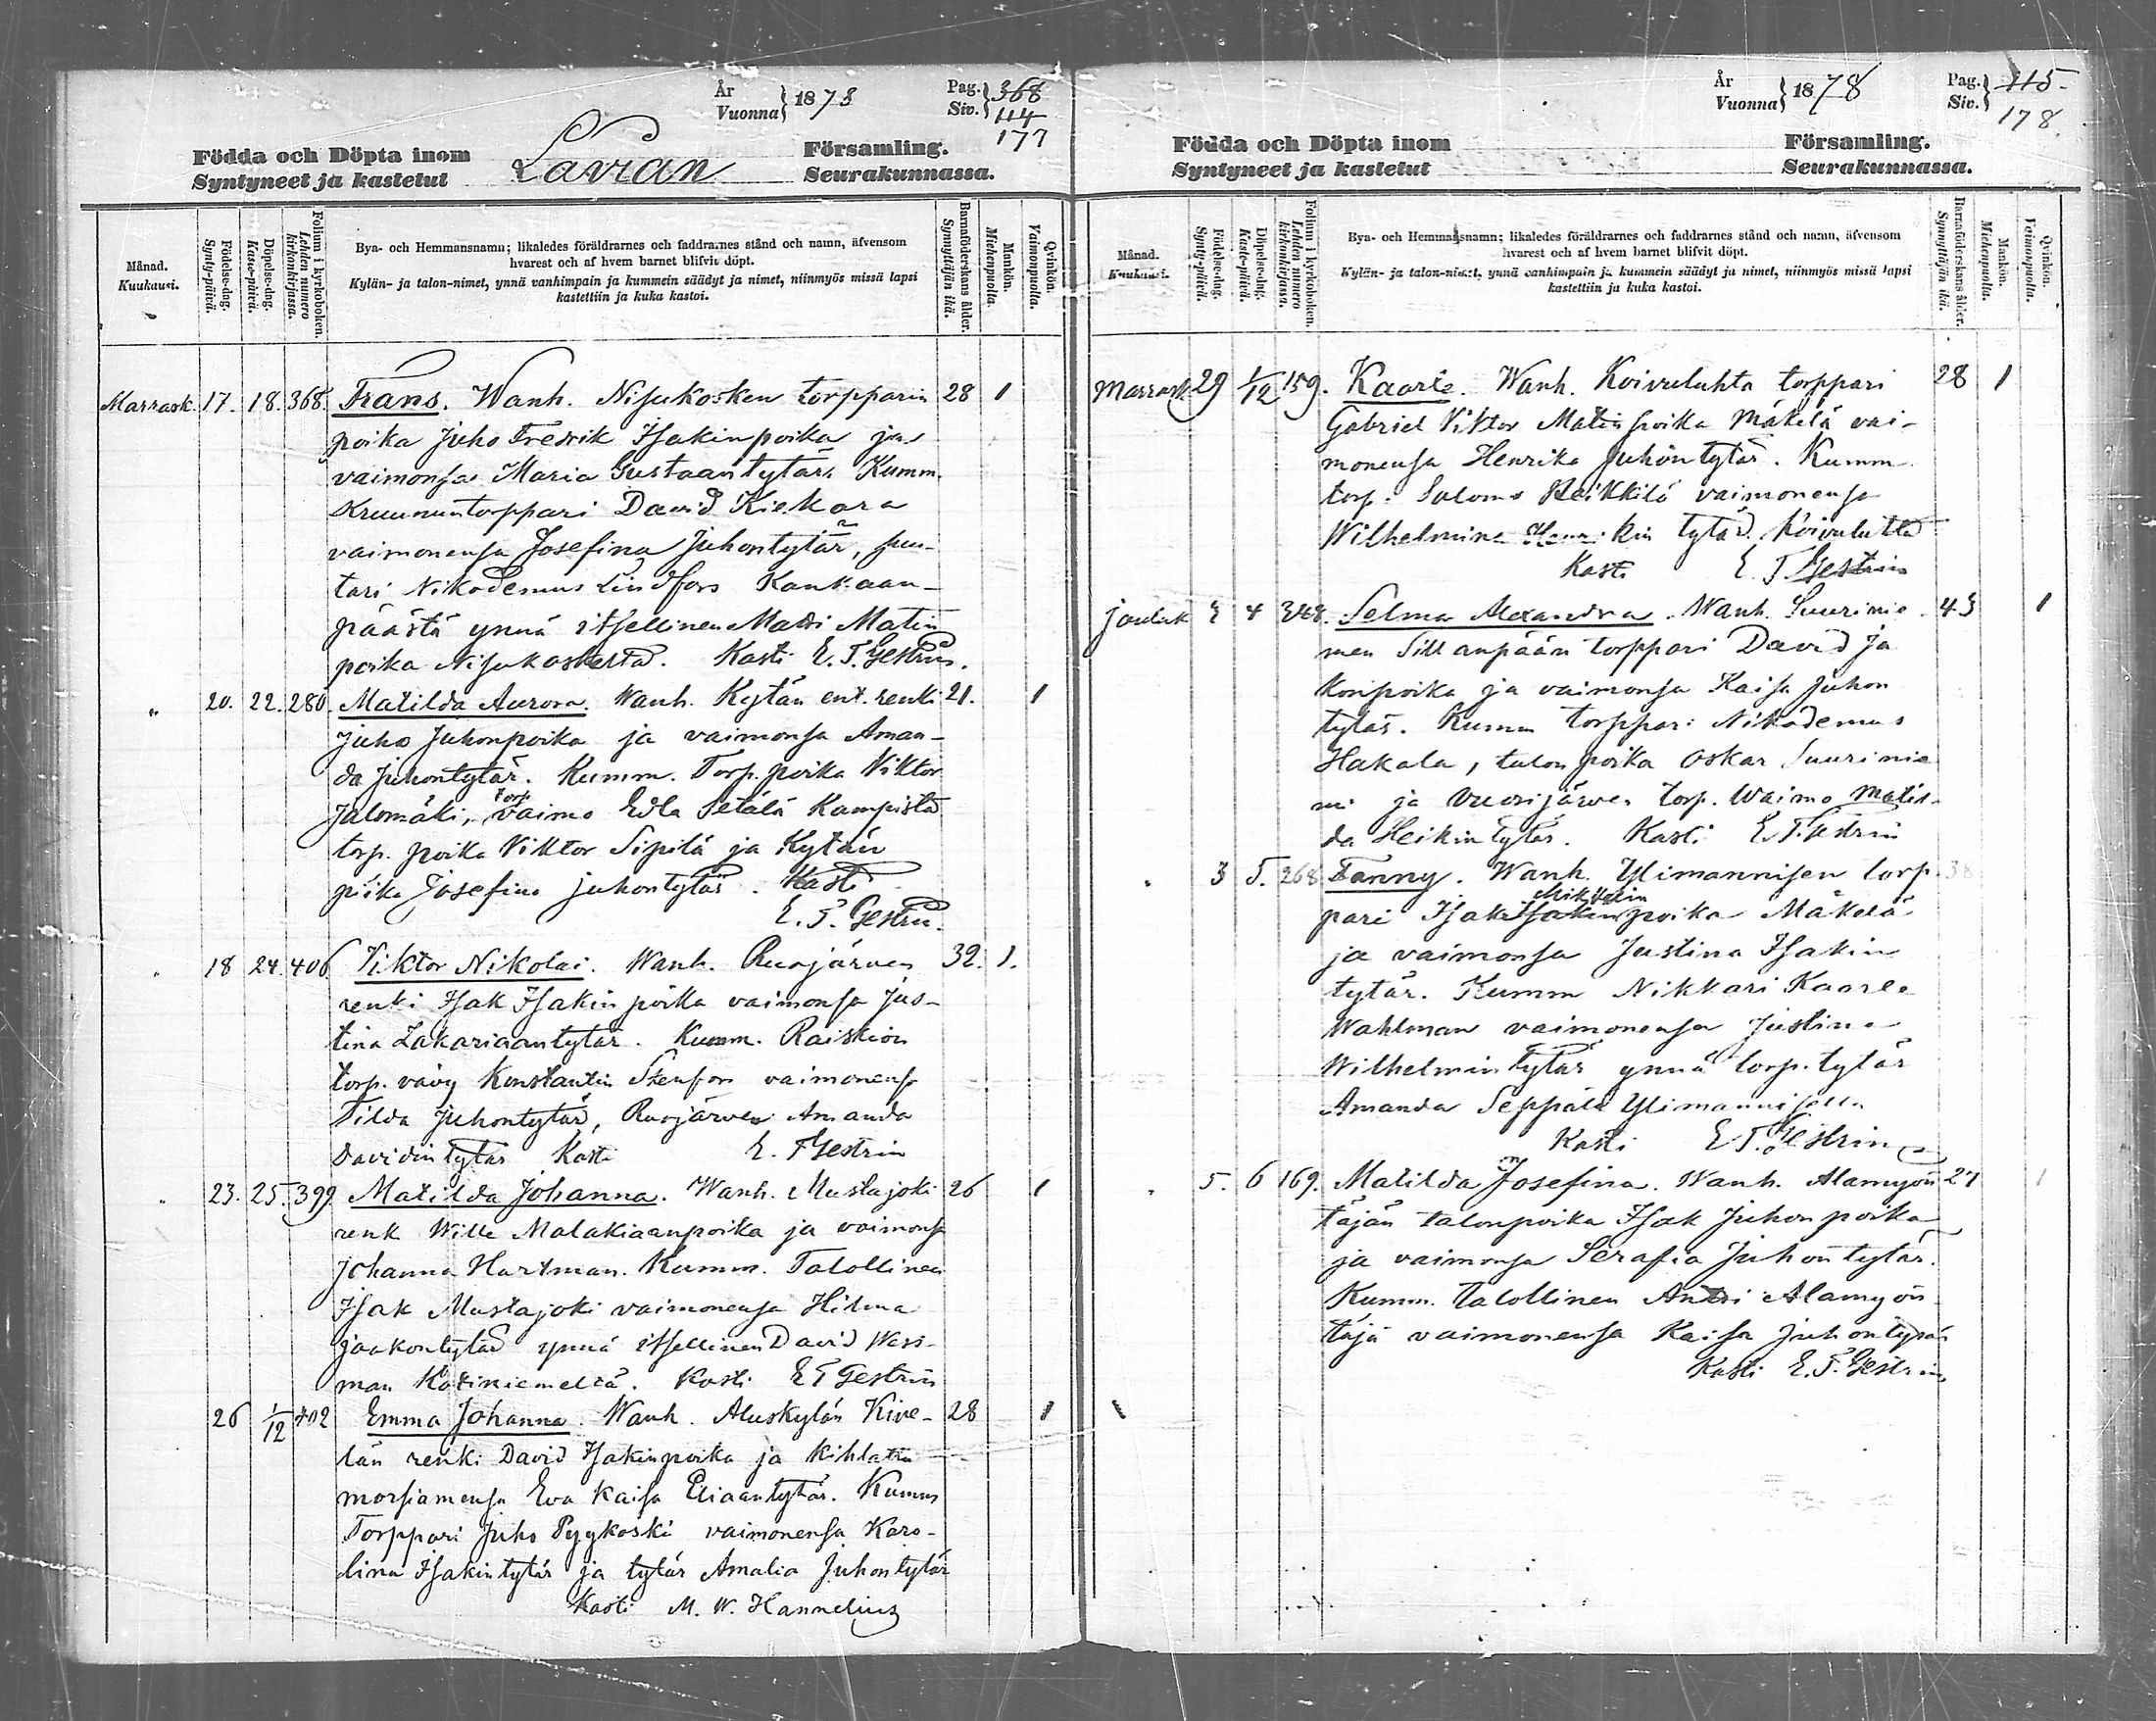 År
Vuonna } 1878
Pag.
Siv. } 368
114
177
Födda och Döpta inom
Syntyneet ja kastetut
Lavian
Församling.
Seurakunnassa.
Månad.
Kuukausi.
Födelse-dag.
Synty-päivä.
Döpelse-dag.
Kaste-päivä.
Folium i kyrkoboken.
Lehden numero kirkonkirjassa.
Bya- och Hemmansnamn; likaledes föräldrarnes och faddrarnes stånd och namn, äfvensom
hvarest och af hvem barnet blifvit döpt.
Kylän- ja talon-nimet, ynnä vanhimpain ja kummein säädyt ja nimet, niinmyös missä lapsi
kastettiin ja kuka kastoi.
Barnaföderskans ålder.
Synnyttäjän ikä.
Mankön.
Miehenpuolia.
Qvinkön.
Vaimonpuolia.
Marrask. 17. 18. 368. Frans. Wanh. Nisukosken torpparin 28 1
poika Juho Fredrik Isakinpoika ja
vaimonsa Maria Gustaantytär. Kumm.
Kruununtorppari David Kiekara
vaimonensa Josefina Juhontytär, suu-
tari Nikodemus Lindfors Kankaan-
päästä ynnä itsellinen Matti Matin
poika Nisukoskelta. Kasti E. T. Gestrin.
" 20. 22. 280. Matilda Aurora. Wanh. Kytän ent. renki 21. 1
Juho Juhonpoika ja vaimonsa Aman-
da Juhontytär. Kumm. Torp. poika Viktor
Jalomäki, torp. vaimo Edla Setälä Kampista
torp. poika Viktor Sipilä ja Kytän
piika Josefina Juhontytär. Kasti
E. T. Gestrin.
" 18 24. 406. Viktor Nikolai. Wanh. Ruojärven 32. 1.
renki Isak Isakinpoika vaimonsa Jus-
tina Zakariaantytär. Kumm. Raiskion
torp. vävy Konstantin Stenfors vaimonensa
Tilda Juhontytär, Ruojärven Amanda
Davidintytär Kasti E. T Gestrin
" 23. 25. 399 Matilda Johanna. Wanh. Mustajoki 26 1
renk Wille Malakiaanpoika ja vaimonsa
Johanna Hartman. Kumm. Talollinen
Isak Mustajoki vaimonensa Hilma
Jaakontytär ynnä itsellinen David Wess-
man Kotiniemeltä. Kasti E T Gestrin
26 1/12 402 Emma Johanna. Wanh. Aluskylän Kive- 28 1
län renki David Isakinpoika ja kihlattu
morsiamensa Eva Kaisa Eliaantytär. Kumm
Torppari Juho Pyykoski vaimonensa Karo-
lina Isakintytär ja tytär Amalia Juhontytär
Kasti M. W. Hannelius
År
Vuonna } 1878
Pag.
Siv. } 115
178.
Födda och Döpta inom
Syntyneet ja kastetut
Församling.
Seurakunnassa.
Månad.
Kuukausi.
Födelse-dag.
Synty-päivä.
Döpelse-dag.
Kaste-päivä.
Folium i kyrkoboken.
Lehden numero kirkonkirjassa.
Bya- och Hemmansnamn; likaledes föräldrarnes och faddrarnes stånd och namn, äfvensom
hvarest och af hvem barnet blifvit döpt.
Kylän- ja talon-nimet, ynnä vanhimpain ja kummein säädyt ja nimet, niinmyös missä lapsi
kastettiin ja kuka kastoi.
Barnaföderskans ålder.
Synnyttäjän ikä.
Mankön.
Miehenpuolia.
Qvinkön.
Vaimonpuolia.
Marrask 29 1/12 159. Kaarle. Wanh. Koivuluhta torppari 28 1
Gabriel Viktor Matinpoika Mäkelä vai-
monensa Henrika Juhontytär. Kumm
torp. Salomo Heikkilä vaimonensa
Wilhelmina Henrikin tytär Koivuluhta
Kasti E T Gestrin
Jouluk 2 4 348. Selma Alexandra. Wanh. Suurinie- 43 1
men Sillanpään torppari David Ja
konpoika ja vaimonsa Kaisa Juhon
tytär. Kumm torppari Nikodemus
Hakala, talon poika Oskar Suurinie
mi ja Vuorijärven torp. waimo Matil-
da Heikintytär. Kasti E T Gestrin
" 3 5. 268 Fanny. Wanh. Ylimannisen torp- 38
pari Isak Isakin Mikkelin poika Mäkelä
ja vaimonsa Justina Isakin
tytär. Kumm Nikkari Kaarle
Wahlman vaimonensa Justina
Wilhelmintytär ynnä torp. tytär
Amanda Seppälä Ylimanniselta
Kasti E T. Gestrin
" 5. 6 169. Matilda Josefina. Wanh. Alamyön 27 1
täjän talonpoika Isak Juhonpoika
ja vaimonsa Serafia Juhontytär.
Kumm. talollinen Antti Alamyön
täjä vaimonensa Kaisa Juhontytär
Kasti E. T. Gestrin